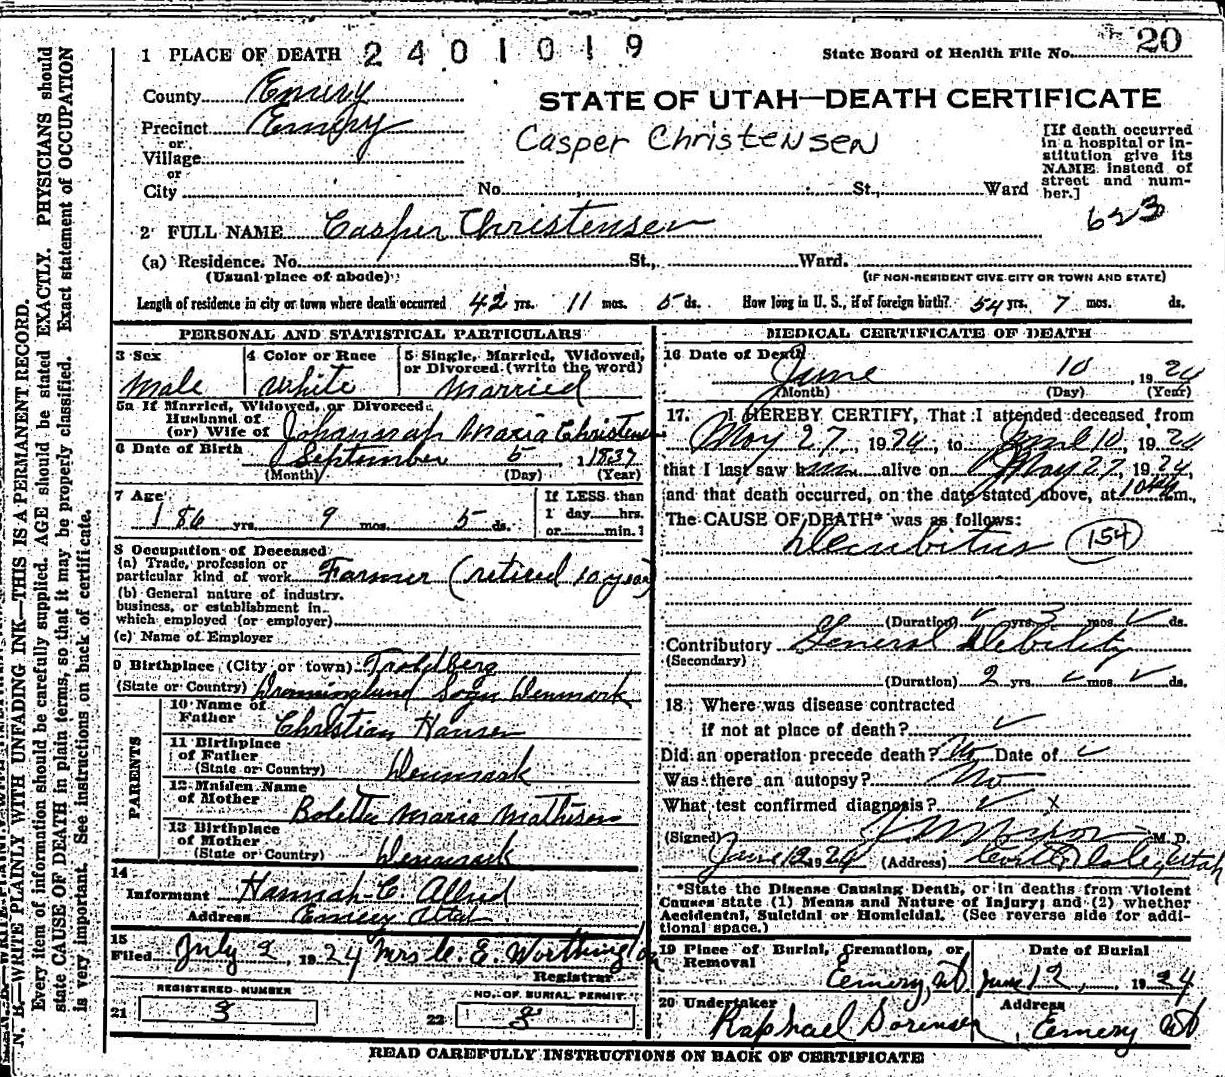 1 PLACE OF DEATH 2401019 State Board of Health File No. 20
County Emery
STATE OF UTAH—DEATH CERTIFICATE
Precinct Emery
or
Village
or
City No. St., Ward
Casper Christensen
[If death occurred
in a hospital or in-
stitution give its
NAME instead of
street and num-
ber.]
623
2 FULL NAME Casper Christensen
(a) Residence. No. St., Ward.
(Usual place of abode) (IF NON-RESIDENT GIVE CITY OR TOWN AND STATE)
Length of residence in city or town where death occurred 42 yrs. 11 mos. 5 ds. How long in U. S., if of foreign birth? 54 yrs. 7 mos. ds.
PERSONAL AND STATISTICAL PARTICULARS
3 Sex 4 Color or Race 5 Single, Married, Widowed,
or Divorced (write the word)
Male White Married
5a If Married, Widowed, or Divorced
Husband of
(or) Wife of Johannah Maria Christensen
6 Date of Birth September 5 1837
(Month) (Day) (Year)
7 Age
86 yrs. 9 mos. 5 ds.
If LESS than
1 day hrs.
or min.
8 Occupation of Deceased
(a) Trade, profession or
particular kind of work Farmer (retired 10 year)
(b) General nature of industry,
business, or establishment in
which employed (or employer)
(c) Name of Employer
9 Birthplace (City or town) Troldberg
(State or Country) Dronninglund Sogn Denmark
PARENTS
10 Name of
Father Christian Hansen
11 Birthplace
of Father
(State or Country) Denmark
12 Maiden Name
of Mother Bolette Maria Mathisen
13 Birthplace
of Mother
(State or Country) Denmark
14
Informant Hannah C. Allred
Address Emery Utah
15
Filed July 2, 1924 Mrs C. E. Worthington
Registrar
REGISTERED NUMBER NO. OF BURIAL PERMIT
21 3 22 3
MEDICAL CERTIFICATE OF DEATH
16 Date of Death
June 10, 1924
(Month) (Day) (Year)
17. I HEREBY CERTIFY, That I attended deceased from
May 27, 1924, to June 10, 1924
that I last saw him alive on May 27, 1924,
and that death occurred, on the date stated above, at m.,
The CAUSE OF DEATH* was as follows:
Decubitus 154
(Duration) yrs. 3 mos. ds.
Contributory General Debility
(Secondary)
(Duration) 2 yrs. mos. ds.
18. Where was disease contracted
if not at place of death?
Did an operation precede death? No Date of
Was there an autopsy? No
What test confirmed diagnosis? x
(Signed) M. D.
June 12 1924 (Address) Castle Dale, Utah
*State the Disease Causing Death, or in deaths from Violent
Causes state (1) Means and Nature of Injury; and (2) whether
Accidental, Suicidal or Homicidal. (See reverse side for addi-
tional space.)
19 Place of Burial, Cremation, or
Removal
Date of Burial
Emery, Ut June 12, 1924
20 Undertaker Address
Raphael Sorensen Emery Ut
READ CAREFULLY INSTRUCTIONS ON BACK OF CERTIFICATE
N. B.—WRITE PLAINLY WITH UNFADING INK—THIS IS A PERMANENT RECORD.
Every item of information should be carefully supplied. AGE should be stated EXACTLY. PHYSICIANS should
state CAUSE OF DEATH in plain terms, so that it may be properly classified. Exact statement of OCCUPATION
is very important. See instructions on back of certificate.